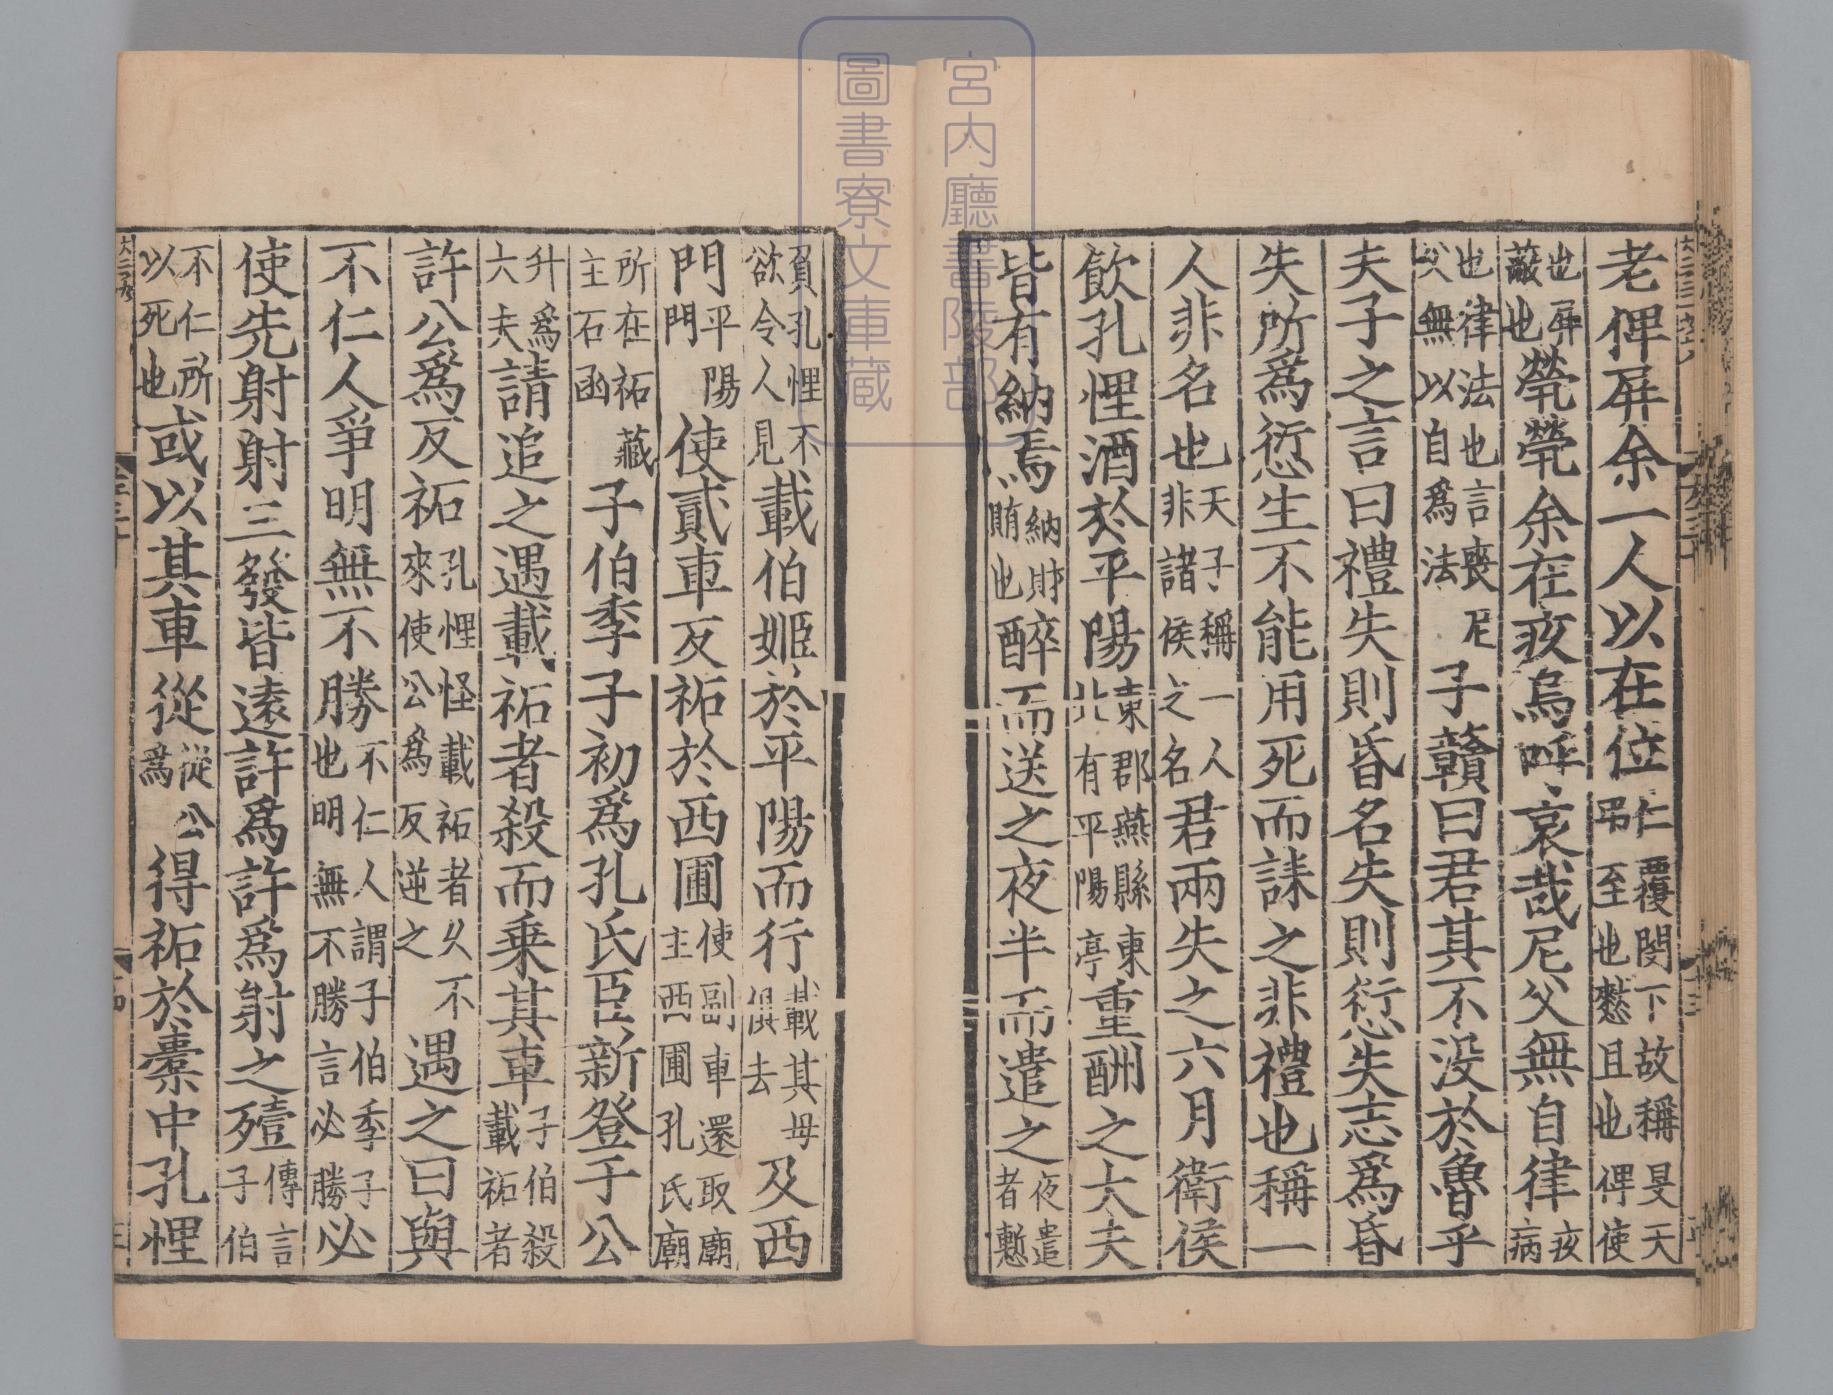 老俾屏余一人以在位仁覆閔下故稱旻天弔至也憖且也俾使
也屏蔽也煢煢余在疚烏呼哀哉尼父無自律疚病
也律法也言喪尼父無以自爲法子贛曰君其不没於魯乎
夫子之言曰禮失則昏名失則愆失志爲昏
失所爲愆生不能用死而誄之非禮也稱一
人非名也天子稱一人非諸侯之名君兩失之六月衛侯
飲孔悝酒於平陽東郡燕縣東北有平陽亭重酬之大夫
皆有納焉納財賄也醉而送之夜半而遣之夜遣者慙
負孔悝不欲令人見載伯姬於平陽而行載其母俱去及西
門平陽門使貳車反祏於西圃使副車還取廟主西圃孔氏廟
所在祏藏主石函子伯季子初爲孔氏臣新登于公
升爲大夫請追之遇載祏者殺而乗其車子伯殺載祏者
許公爲反祏孔悝怪載祏者久不來使公爲反逆之遇之曰與
不仁人爭明無不勝不仁人謂子伯季子也明無不勝言必勝必
使先射射三發皆遠許爲許爲射之殪傳言子伯
不仁所以死也或以其車從從公爲得祏於橐中孔悝
宮内廳書陵部
圖書寮文庫藏